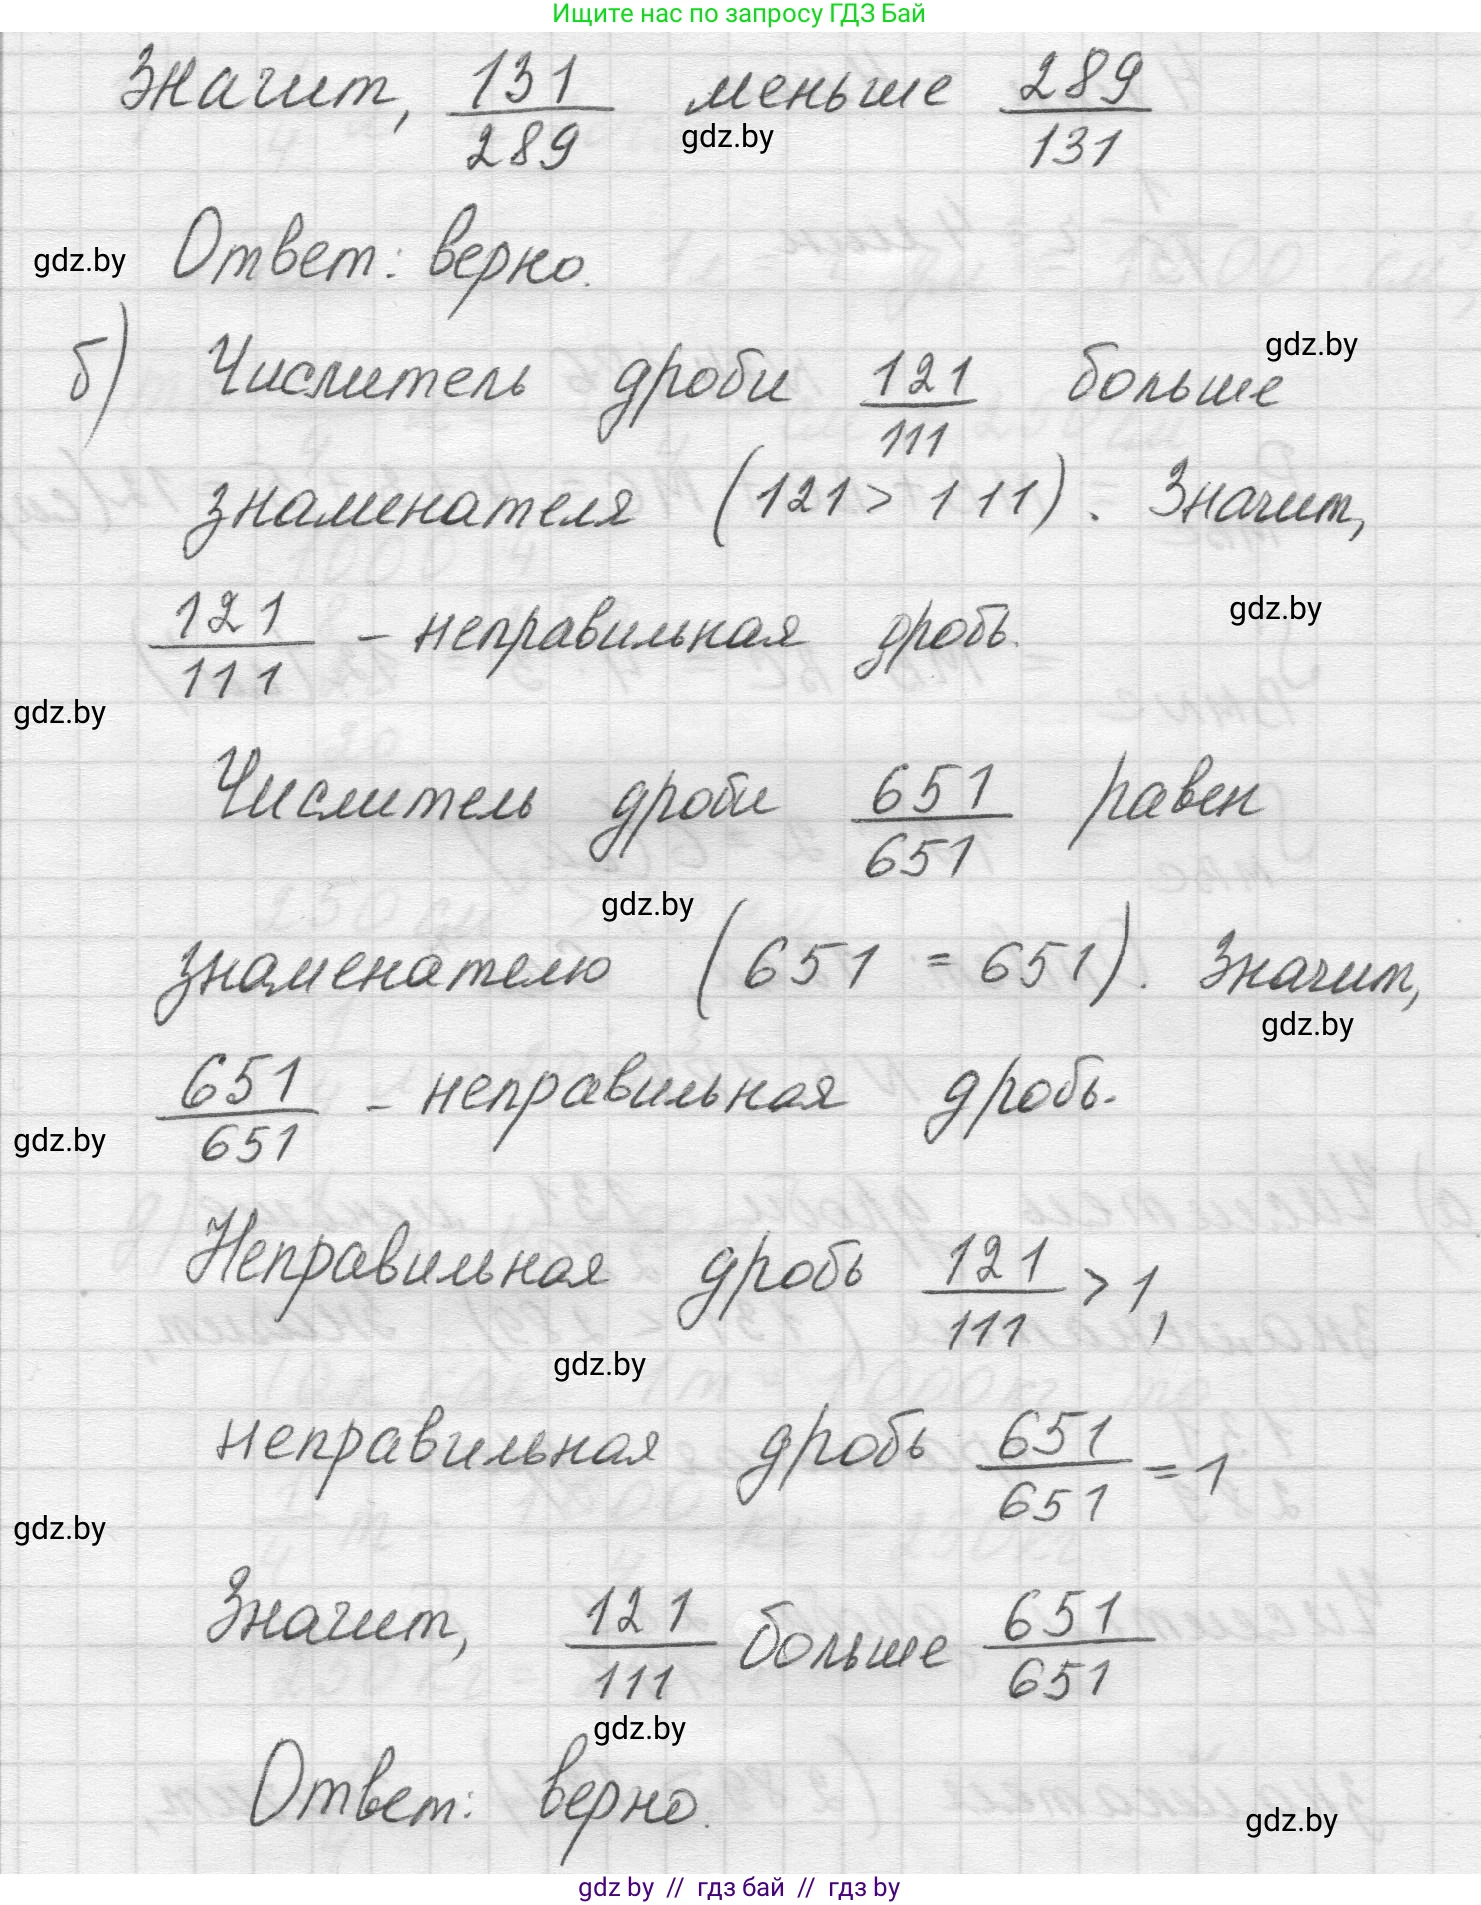 Ищите нас по запросу ГДЗ Бай
Значит, 131/289 меньше 289/131
gdz.by
gdz.by
Ответ: верно.
gdz.by
б) Числитель дроби 121/111 больше
знаменателя (121 > 111). Значит,
gdz.by
121/111 - неправильная дробь.
gdz.by
Числитель дроби 651/651 равен
gdz.by
знаменателю (651 = 651). Значит,
gdz.by
651/651 - неправильная дробь.
gdz.by
Неправильная дробь 121/111 > 1,
gdz.by
неправильная дробь 651/651 = 1
gdz.by
Значит, 121/111 больше 651/651
gdz.by
Ответ: верно.
gdz.by
gdz by // гдз бай // гдз by